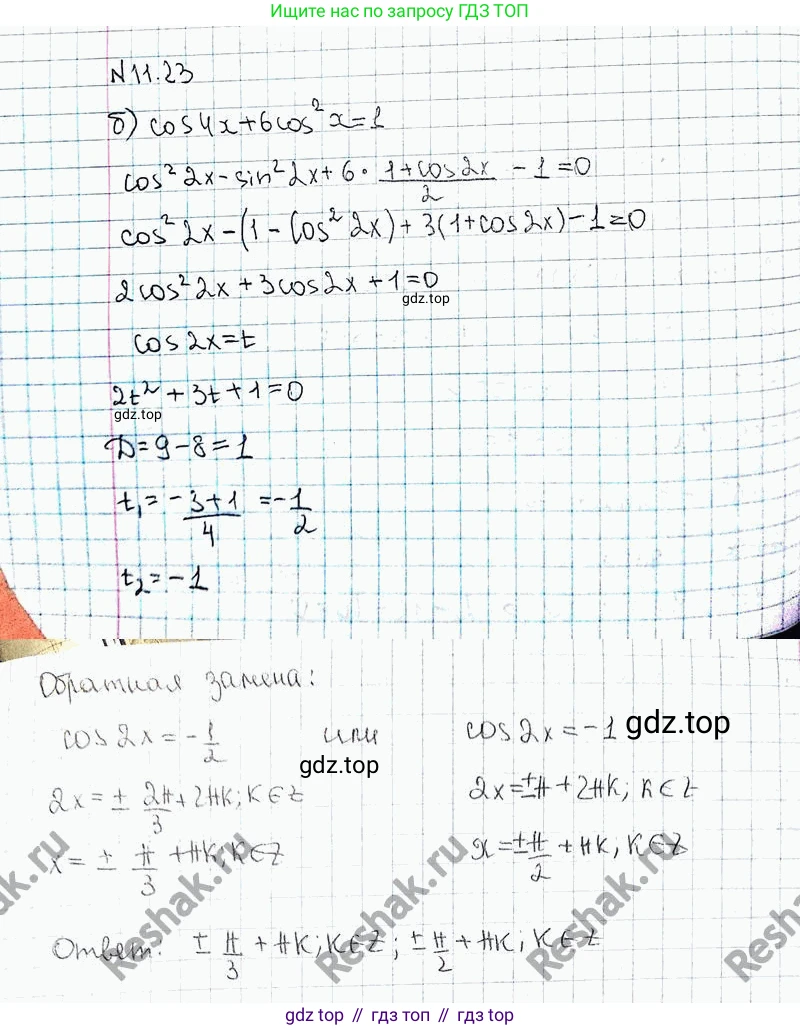 Ищите нас по запросу ГДЗ ТОП
N 11.23
б) cos4x+6cos²x=1
cos²2x-sin²2x+6·(1+cos2x)/2 -1=0
cos²2x-(1-cos²2x)+3(1+cos2x)-1=0
2cos²2x+3cos2x+1=0
gdz.top
cos2x=t
2t²+3t+1=0
gdz.top
D=9-8=1
t₁=-3+1/4 =-1/2
t₂=-1
Обратная замена:
cos2x=-1/2 или cos2x=-1
gdz.top
gdz.top
2x=± 2π/3+2πK; K∈Z 2x=±π+2πK; K∈Z
x=± π/3 +πK; K∈Z x=±π/2+πK, K∈Z
Reshak.ru
Reshak.ru
Reshak.ru
Reshak.ru
Ответ: ± π/3 +πK; K∈Z; ±π/2+πK; K∈Z
gdz.top // гдз топ // gdz top